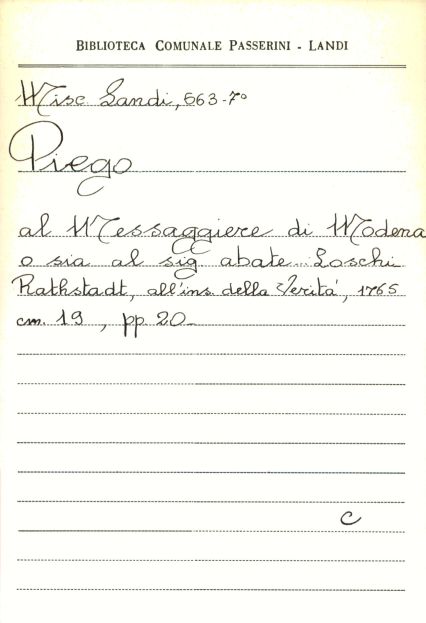 BIBLIOTECA COMUNALE PASSERINI - LANDI
Misc. Landi, 563-7°
Piego
al Messaggiere di Modena
o sia al sig abate Loschi
Rathstadt, all'ins. della Verità, 1765
cm. 19, pp. 20
c